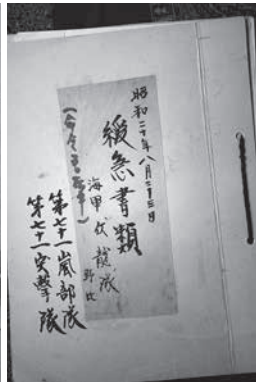 昭和二十年八月二十三日
緩急書類
海甲 伏龍隊
野比
第七十一嵐部隊
第七十一突撃隊